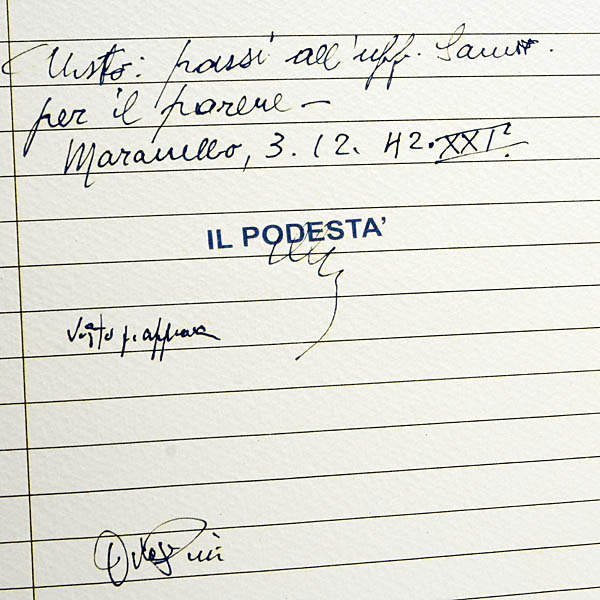 Visto: passi all'uff. Sanit.
per il parere —
Maranello, 3. 12. 42. XXI°.
IL PODESTA'
Visto si approva